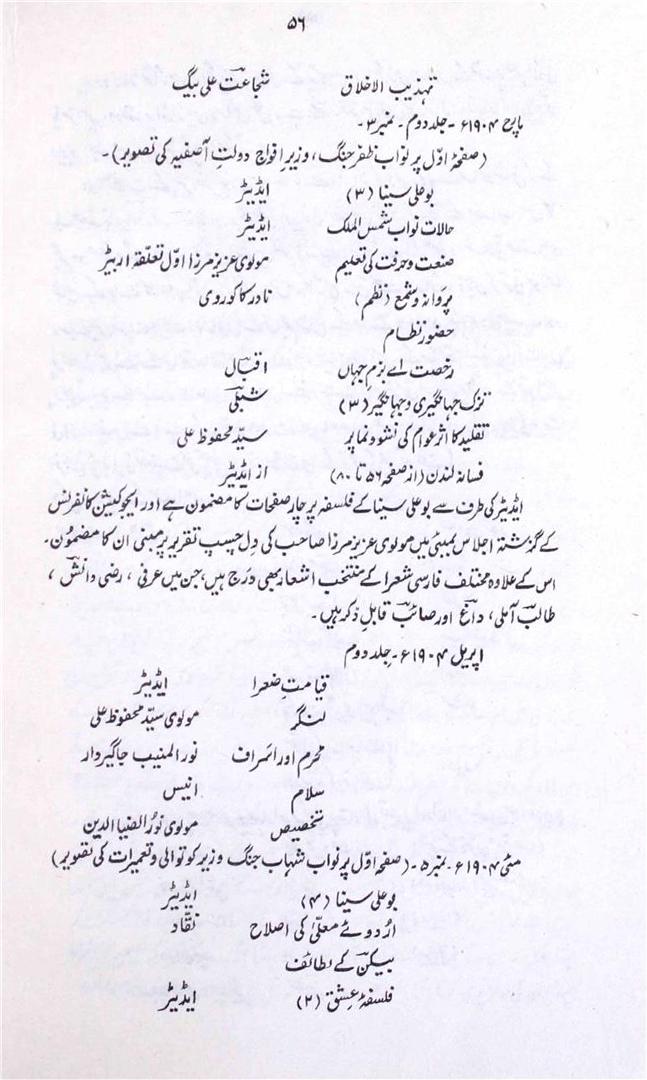 ۵۶
تہذیب الاخلاق شجاعت علی بیگ
مارچ ۱۹۰۴ء۔ جلد دوم۔ نمبر ۳۔
(صفحۂ اوّل پر نواب ظفر جنگ، وزیرِ افواج دولتِ آصفیہ کی تصویر)۔
بو علی سینا (۳) ایڈیٹر
حالات نواب شمس الملک ایڈیٹر
صنعت و حرفت کی تعلیم مولوی عزیز مرزا اوّل تعلقہ اریٹر
پروانہ و شمع (نظم) نادر کاکوروی
حضور نظام
رخصت اے بزمِ جہاں اقبال
تزک جہانگیری و جہانگیر (۳) شبلی
تقلید کا اثر عوام کی نشوونما پر سیّد محفوظ علی
فسانۂ لندن (از صفحہ ۵۶ تا ۸۰) از ایڈیٹر
ایڈیٹر کی طرف سے بو علی سینا کے فلسفہ پر چار صفحات کا مضمون ہے اور ایجوکیشن کانفرنس
کے گذشتہ اجلاس بمبئی میں مولوی عزیز مرزا صاحب کی دِل چسپ تقریر پر مبنی ان کا مضمون۔
اس کے علاوہ مختلف فارسی شعرا کے منتخب اشعار بھی درج ہیں، جن میں عرفی، رضی دانش،
طالب آملی، داغ اور صائب قابل ذکر ہیں۔
اپریل ۱۹۰۴ء۔ جلد دوم
قیامتِ صغرا ایڈیٹر
لنگر مولوی سیّد محفوظ علی
محرم اور اسراف نور المنیب جاگیردار
سلام انیس
تخصیص مولوی نورُ الضیا الدین
مئی ۱۹۰۴ء۔ نمبر ۵۔ (صفحہ اوّل پر نواب شہاب جنگ وزیر کوتوالی و تعمیرات کی تصویر)
بو علی سینا (۴) ایڈیٹر
اُردوئے معلّیٰ کی اصلاح نقّاد
بیکن کے لطائف
فلسفۂ عشق (۲) ایڈیٹر